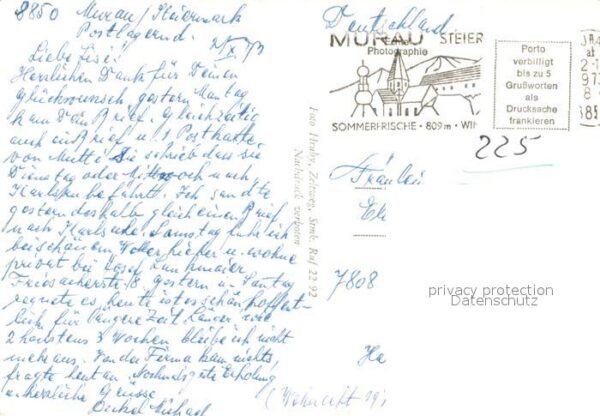 8850 Murau / Steiermark
Postlagernd.
2/X 73
Liebe Lisi!
Herzlichen Dank für Deinen
Glückwunsch, gestern Montag
kam Dein Brief. Gleichzeitig
auch ein Brief u. 1 Postkarte
von Mutti. Sie schrieb dass sie
Dienstag oder Mittwoch nach
Karlsruhe fährt. Ich sandte
gestern deshalb gleich einen Brief
nach Karlsruhe. Samstag fuhr ich
bei schönem Wetter hieher u. wohne
privat bei Josef
Friesacherstr. 8. Gestern u. Sonntag
regnete es, heute ist es schön, hoffent-
lich für längere Zeit. Länger wie
2 höchstens 3 Wochen bleibe ich nicht
mehr aus. Von der Firma kam nichts,
fragte heut an. Nochmals gute Erholung
u. herzliche Grüsse
Michael
Foto Hruby, Zeltweg, Stmk. Ruf 22 92
Nachdruck verboten
Deutschland
MURAU STEIER
Photographie
SOMMERFRISCHE · 809m · WIN
Porto
verbilligt
bis zu 5
Grußworten
als
Drucksache
frankieren
225
Fräulein
7808
privacy protection
Datenschutz